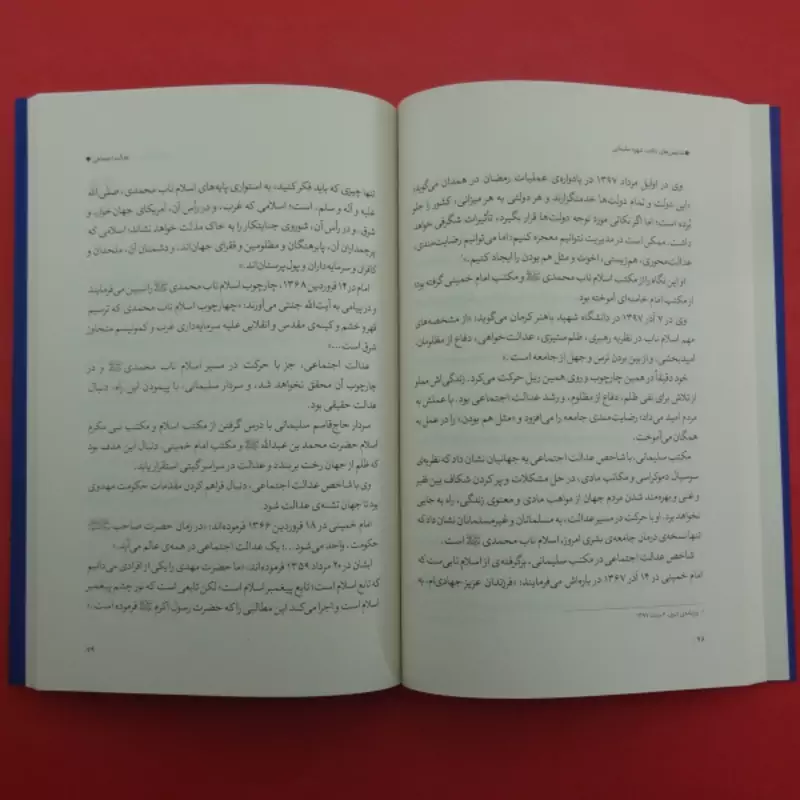 شاخص‌های مکتب شهید سلیمانی
وی در اوایل مرداد ۱۳۹۷ در یادواره‌ی عملیات رمضان در همدان می‌گوید:
«این دولت و تمام دولت‌ها خدمتگزارند و هر دولتی به هر میزانی، کشور را جلو
بُرده است؛ اما اگر نکاتی مورد توجه دولت‌ها قرار بگیرد، تأثیرات شگرفی خواهد
داشت. ممکن است در مدیریت نتوانیم معجزه کنیم؛ اما می‌توانیم رضایت‌مندی،
عدالت‌محوری، هم‌زیستی، اخوت و مثل هم بودن را ایجاد کنیم.»
او این نگاه را از مکتب اسلام ناب محمدی ﷺ و مکتب امام خمینی گرفته بود؛
از مکتب امام خامنه‌ای آموخته بود.
وی در ۷ آذر ۱۳۹۷ در دانشگاه شهید باهنر کرمان می‌گوید: «از مشخصه‌های
مهم اسلام ناب در نظریه رهبری، ظلم‌ستیزی، عدالت‌خواهی، دفاع از مظلومان،
امیدبخشی، و از بین بردن ترس و جهل از جامعه است.»
خود دقیقاً در همین چارچوب و روی همین ریل حرکت می‌کرد. زندگی‌اش مملو
از تلاش برای نفی ظلم، دفاع از مظلوم، و رشد عدالت اجتماعی بود. با عملش به
مردم امید می‌داد؛ رضایت‌مندی جامعه را می‌افزود و «مثل هم بودن» را در عمل به
همگان می‌آموخت.
مکتب سلیمانی، با شاخص عدالت اجتماعی به جهانیان نشان داد که نظریه‌ی
سوسیال دموکراسی و مکاتب مادی، در حل مشکلات و پر کردن شکاف بین فقیر
و غنی و بهره‌مند شدن مردم جهان از مواهب مادی و معنوی زندگی، راه به جایی
نخواهد برد. او با حرکت در مسیر عدالت، به مسلمانان و غیرمسلمانان نشان داد که
تنها نسخه‌ی درمان جامعه‌ی بشری امروز، اسلام ناب محمدی ﷺ است.
شاخص عدالت اجتماعی در مکتب سلیمانی، برگرفته‌ی از اسلام نابی ست که
امام خمینی در ۱۴ آذر ۱۳۶۷ در باره‌اش می‌فرمایند: «فرزندان عزیز جهادی‌ام، به
۱۳۹۷
۹۸
عدالت اجتماعی
تنها چیزی که باید فکر کنید، به استواری پایه‌های اسلام ناب محمدی، صلی‌الله
علیه و آله و سلم، است؛ اسلامی که غرب، و در رأس آن، آمریکای جهان‌خوار، و
شرق، و در رأس آن، شوروی جنایتکار را به خاک مذلت خواهد نشاند؛ اسلامی که
پرچمداران آن، پابرهنگان و مظلومین و فقرای جهان‌اند، و دشمنان آن، ملحدان و
کافران و سرمایه‌داران و پول‌پرستان‌اند.»
امام در ۱۴ فروردین ۱۳۶۸، چارچوب اسلام ناب محمدی ﷺ را تبیین می‌فرمایند
و در پیامی به آیت‌الله جنتی می‌آورند: «چهارچوب اسلام ناب محمدی که ترسیم
قهر و خشم و کینه‌ی مقدس و انقلابی علیه سرمایه‌داری غرب و کمونیسم متجاوز
شرق است...»
عدالت اجتماعی، جز با حرکت در مسیر اسلام ناب محمدی ﷺ و در
چارچوب آن محقق نخواهد شد، و سردار سلیمانی، با پیمودن این راه، دنبال
عدالت حقیقی بود.
سردار حاج‌قاسم سلیمانی با درس گرفتن از مکتب اسلام و مکتب نبی مکرم
اسلام حضرت محمد بن عبدالله ﷺ و مکتب امام خمینی، دنبال این هدف بود
که ظلم از جهان رخت بربندد و عدالت در سراسر گیتی استقرار یابد.
وی با شاخص عدالت اجتماعی، دنبال فراهم کردن مقدمات حکومت مهدوی
بود تا جهان تشنه‌ی عدالت شود.
امام خمینی در ۱۸ فروردین ۱۳۶۶ فرموده‌اند: «در زمان حضرت صاحب
حکومت، واحد می‌شود...؛ یک عدالت اجتماعی در همه‌ی عالم می‌آید.»
ایشان در ۲۰ مرداد ۱۳۵۹ فرموده‌اند: «ما حضرت مهدی را یکی از افرادی می‌دانیم
که تابع اسلام است؛ تابع پیغمبر اسلام است؛ لکن تابعی است که نور چشم پیغمبر
اسلام است و اجرا می‌کند این مطالبی را که حضرت رسول اکرم ﷺ فرموده است.»
۹۹